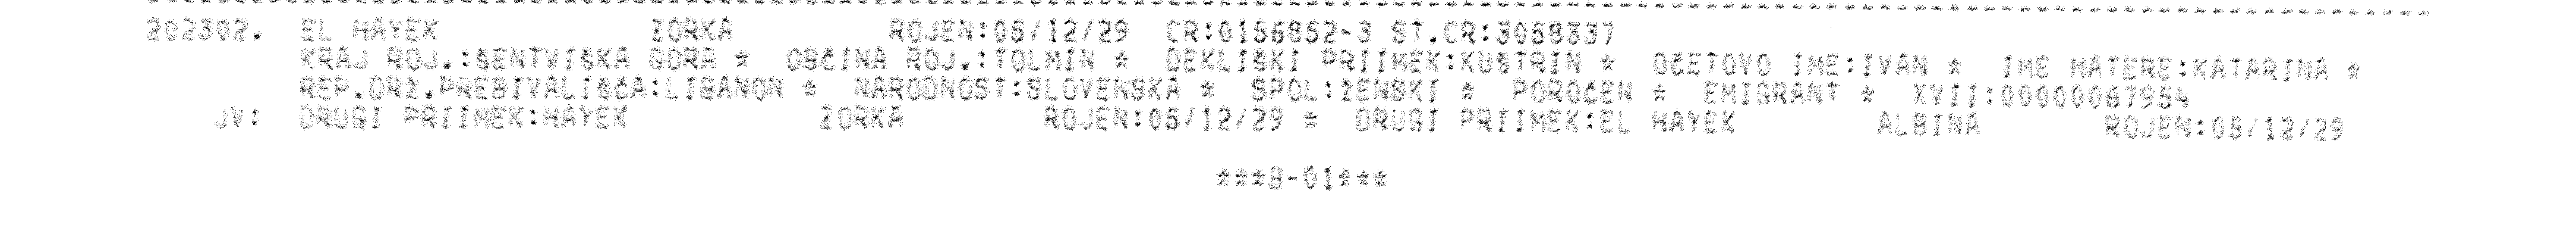 202302. EL HAYEK ZORKA ROJEN:05/12/29 CR:0156852-3 ST.CR:3058337
KRAJ ROJ.:ŠENTVIŠKA GORA * OBČINA ROJ.:TOLMIN * DEKLIŠKI PRIIMEK:KUŠTRIN * OČETOVO IME:IVAN * IME MATERE:KATARINA *
REP.DRŽ.PREBIVALIŠČA:LIBANON * NARODNOST:SLOVENSKA * SPOL:ŽENSKI * POROČEN * EMIGRANT * XVII:00000067954
JV: DRUGI PRIIMEK:HAYEK ZORKA ROJEN:05/12/29 * DRUGI PRIIMEK:EL HAYEK ALBINA ROJEN:05/12/29
***B-01***